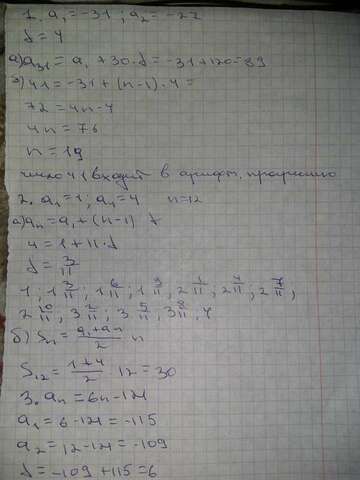 1. a₁ = -31 ; a₂ = -27
d = 4
а) a₃₁ = a₁ + 30·d = -31 + 120 = 89
б) 41 = -31 + (n-1)·4 =
72 = 4n - 4
4n = 76
n = 19
число 41 входит в арифм. прогрессию
2. a₁ = 1 ; aₙ = 4 n = 12
а) aₙ = a₁ + (n-1) d
4 = 1 + 11·d
d = 3/11
1 ; 1 3/11 ; 1 6/11 ; 1 9/11 ; 2 1/11 ; 2 4/11 ; 2 7/11 ;
2 10/11 ; 3 2/11 ; 3 5/11 ; 3 8/11 ; 4
б) Sₙ = (a₁ + aₙ)/2 n
S₁₂ = (1+4)/2 · 12 = 30
3. aₙ = 6n - 121
a₁ = 6 - 121 = -115
a₂ = 12 - 121 = -109
d = -109 + 115 = 6